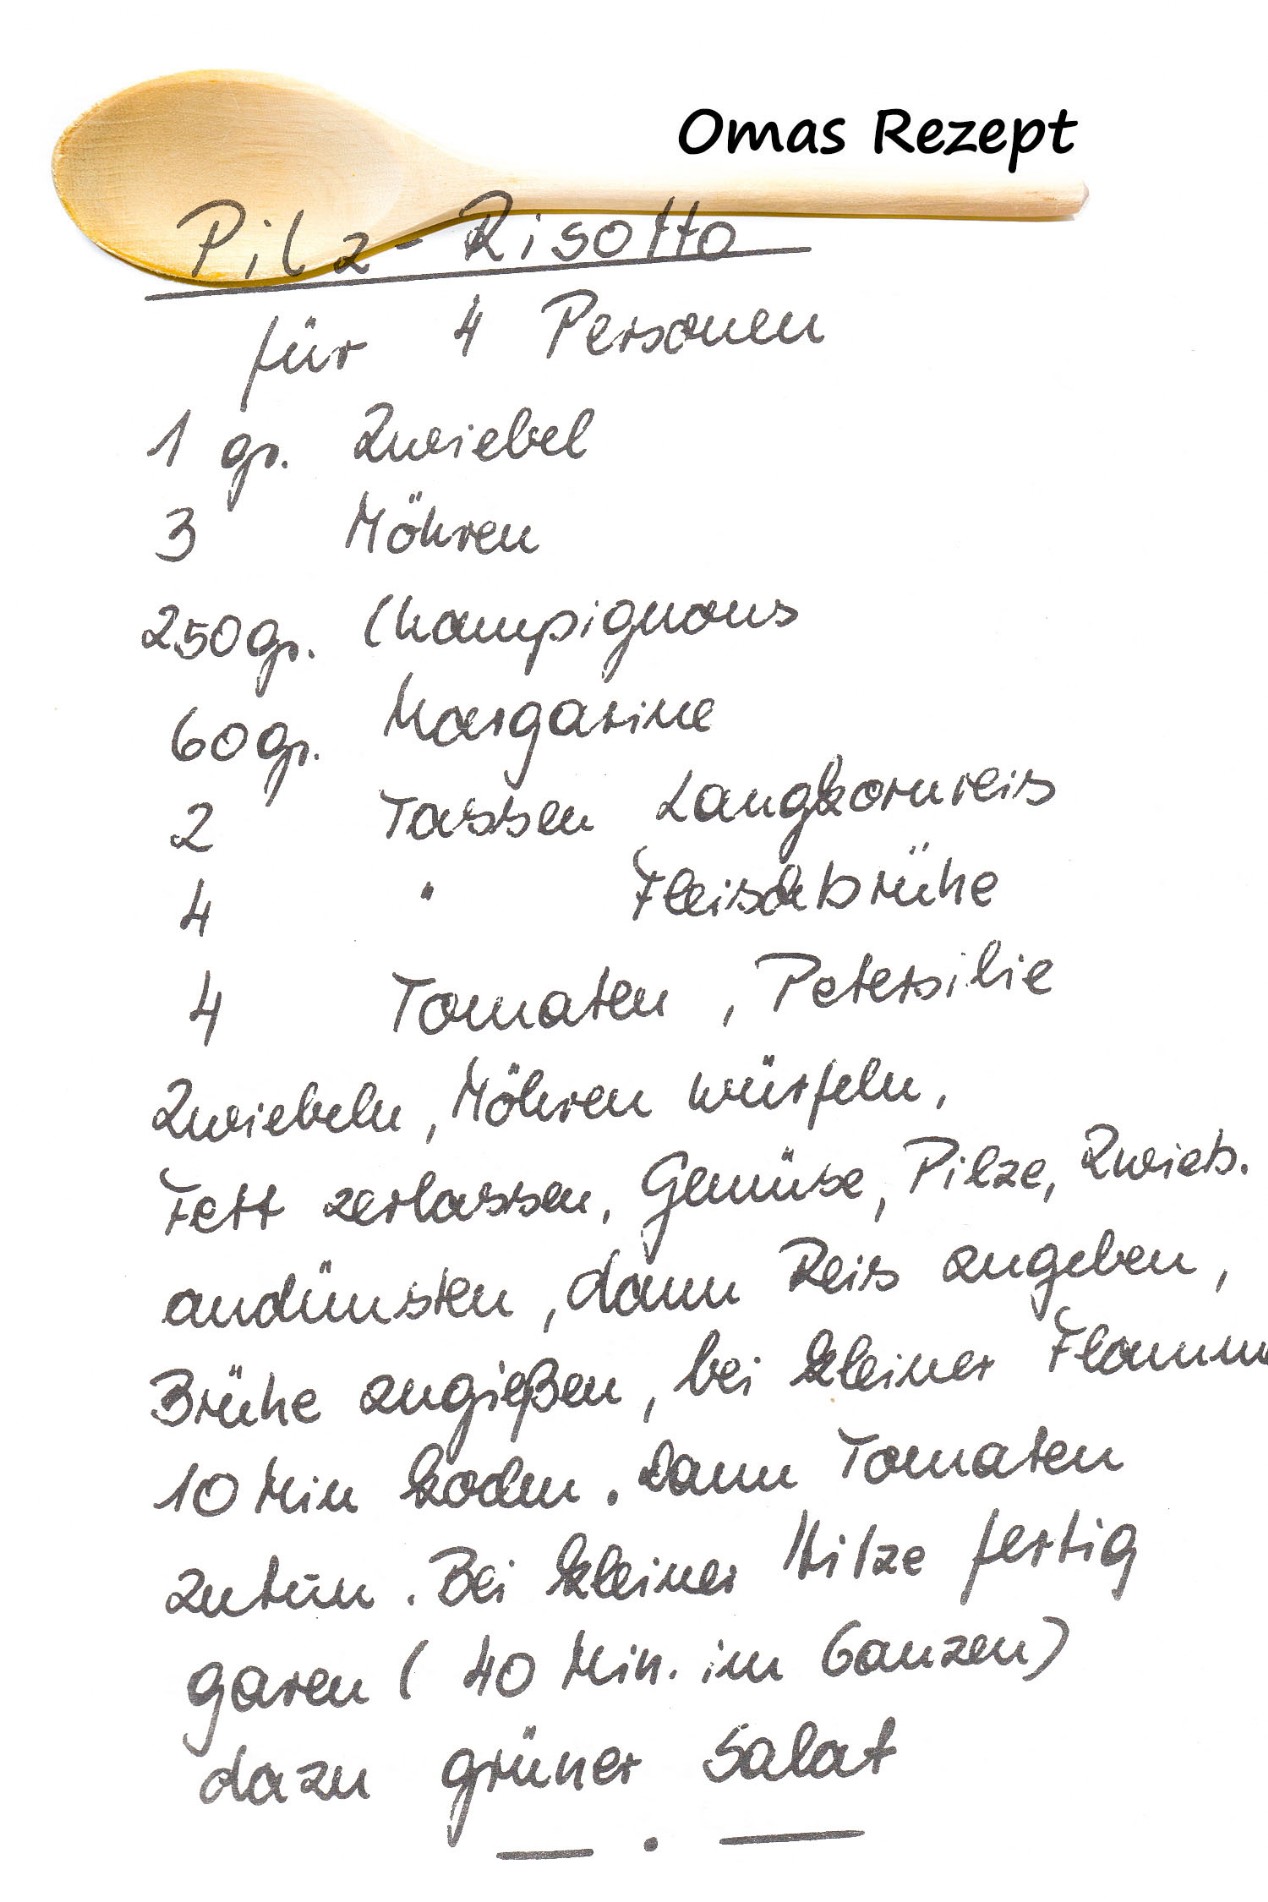 Omas Rezept
Pilz-Risotto
für 4 Personen
1 gr. Zwiebel
3 Möhren
250gr. Champignons
60gr. Margarine
2 Tassen Langkornreis
4 " Fleischbrühe
4 Tomaten, Petersilie
Zwiebeln, Möhren würfeln,
Fett zerlassen, Gemüse, Pilze, Zwieb.
andünsten, dann Reis zugeben,
Brühe zugießen, bei kleiner Flamm
10 Min kochen. Dann Tomaten
zutun. Bei kleiner Hitze fertig
garen (40 Min. im Ganzen)
dazu grüner Salat